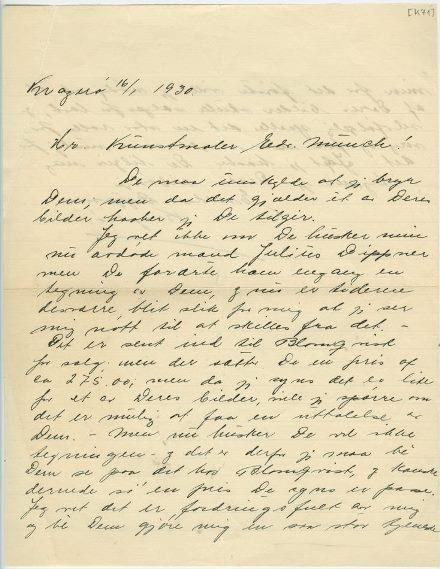 [K71]
Kragerø 16/1 1930
Hr. Kunstmaler Edv. Munch!
De maa undskylde at jeg bryr
Dem, men da det gjælder et av Deres
bilder haaber jeg De tilgir.
Jeg vet ikke om De husker min
nu avdøde mand Julius Dippner
men De forærte ham engang en
tegning av Dem, og nu er tiderne
desværre blit slik for mig at jeg ser
mig nødt til at skilles fra det. –
Det er sent ind til Blomqvist
for salg, men der sätter De en pris af
ca 275.00, men da jeg syns det er lite
for et av Deres bilder, vil jeg spørre om
det er mulig at faa en uttalelse av
Dem. – Men nu husker De vel ikke
tegningen – og det er derfor jeg maa be
Dem se paa det hos Blomqvist, og kanske
derunde si en pris De syns er passe.
Jeg vet det er fordringsfult av mig
og be Dem gjøre mig en saa stor tjeneste